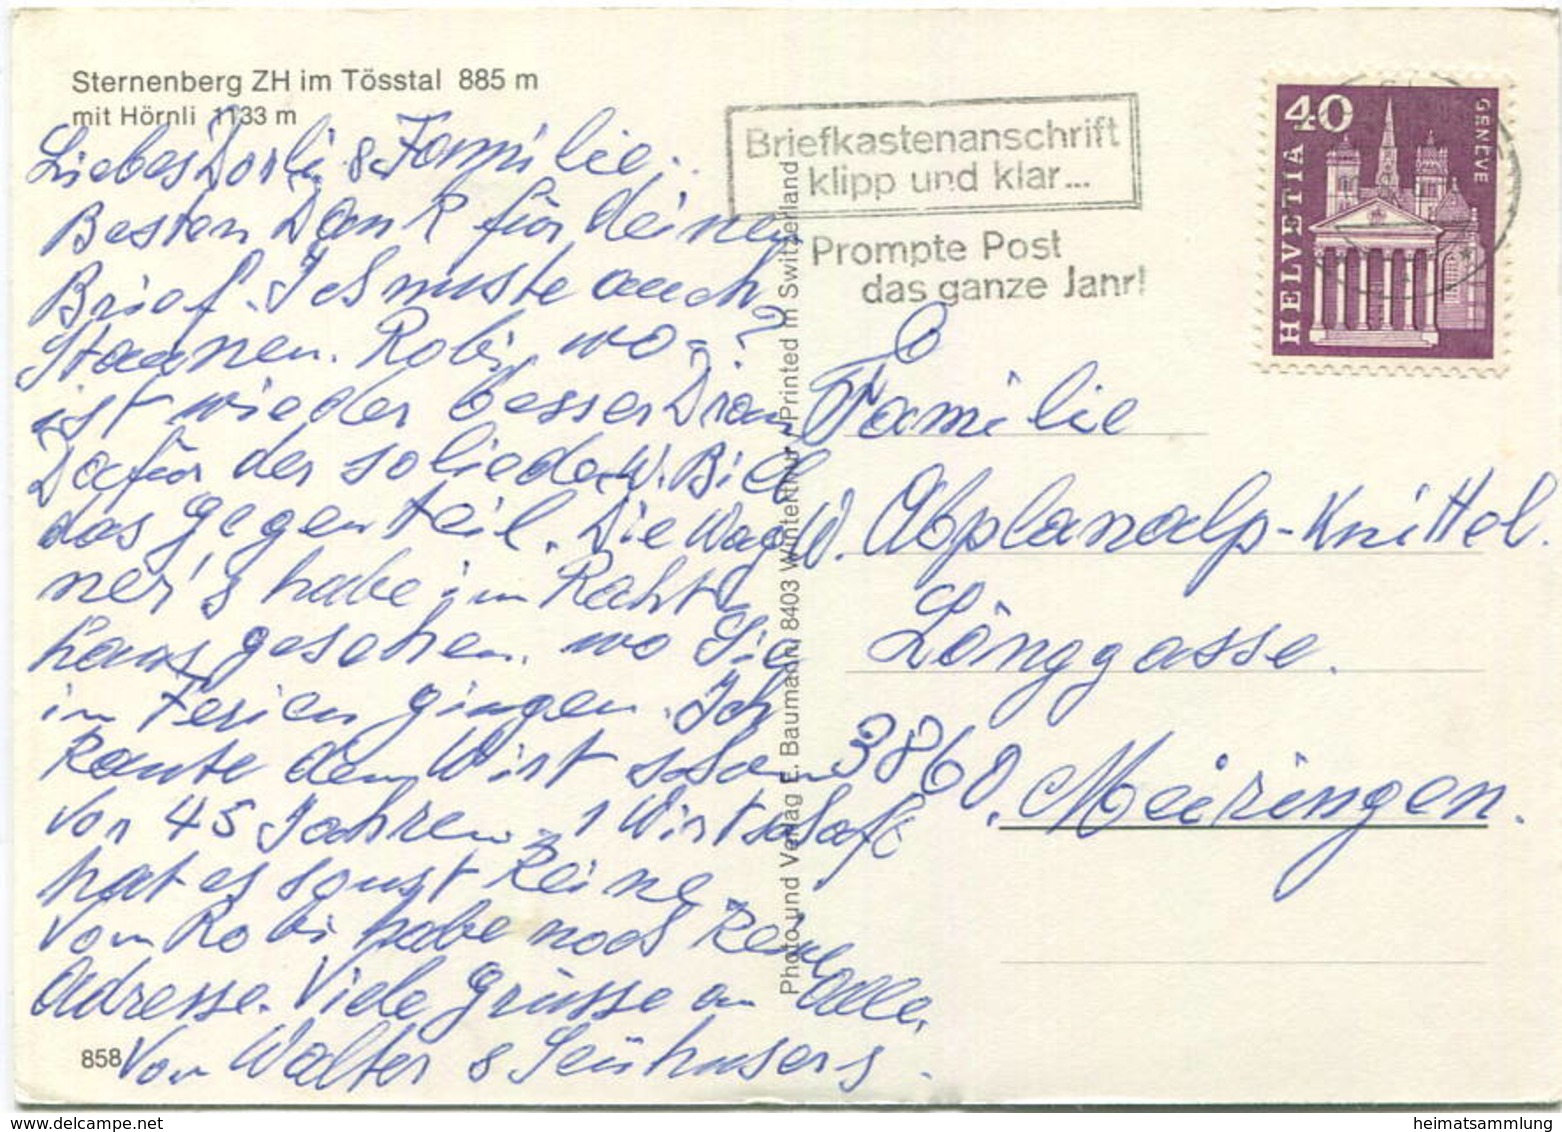 Sternenberg ZH im Tösstal 885 m
mit Hörnli 1133 m
Liebes Dorli & Familie.
Besten Dank für deinen
Brief. Ich muste auch
Staunen. Robi, wo - ?
ist wieder besser Dran
Dafür der soliede W. Bill
das gegenteil. Die Wag
ner's habe im Raht
haus gesehen. wo Sie
in Ferien gingen. Ich
kante den Wirt schon
Vor 45 Jahren. 1 Wirtschaft
hat es sonst keine.
Vom Robi habe noch keine
Adresse. Viele Grüsse an Alle.
Von Walter &
858
Photo und Verlag E. Baumann, 8403 Winterthur / Printed in Switzerland
Briefkastenanschrift
klipp und klar...
Prompte Post
das ganze Jahr!
40
GENEVE
HELVETIA
Familie
W. Abplanalp-Knittel.
Länggasse.
3860. Meiringen.
heimatsammlung